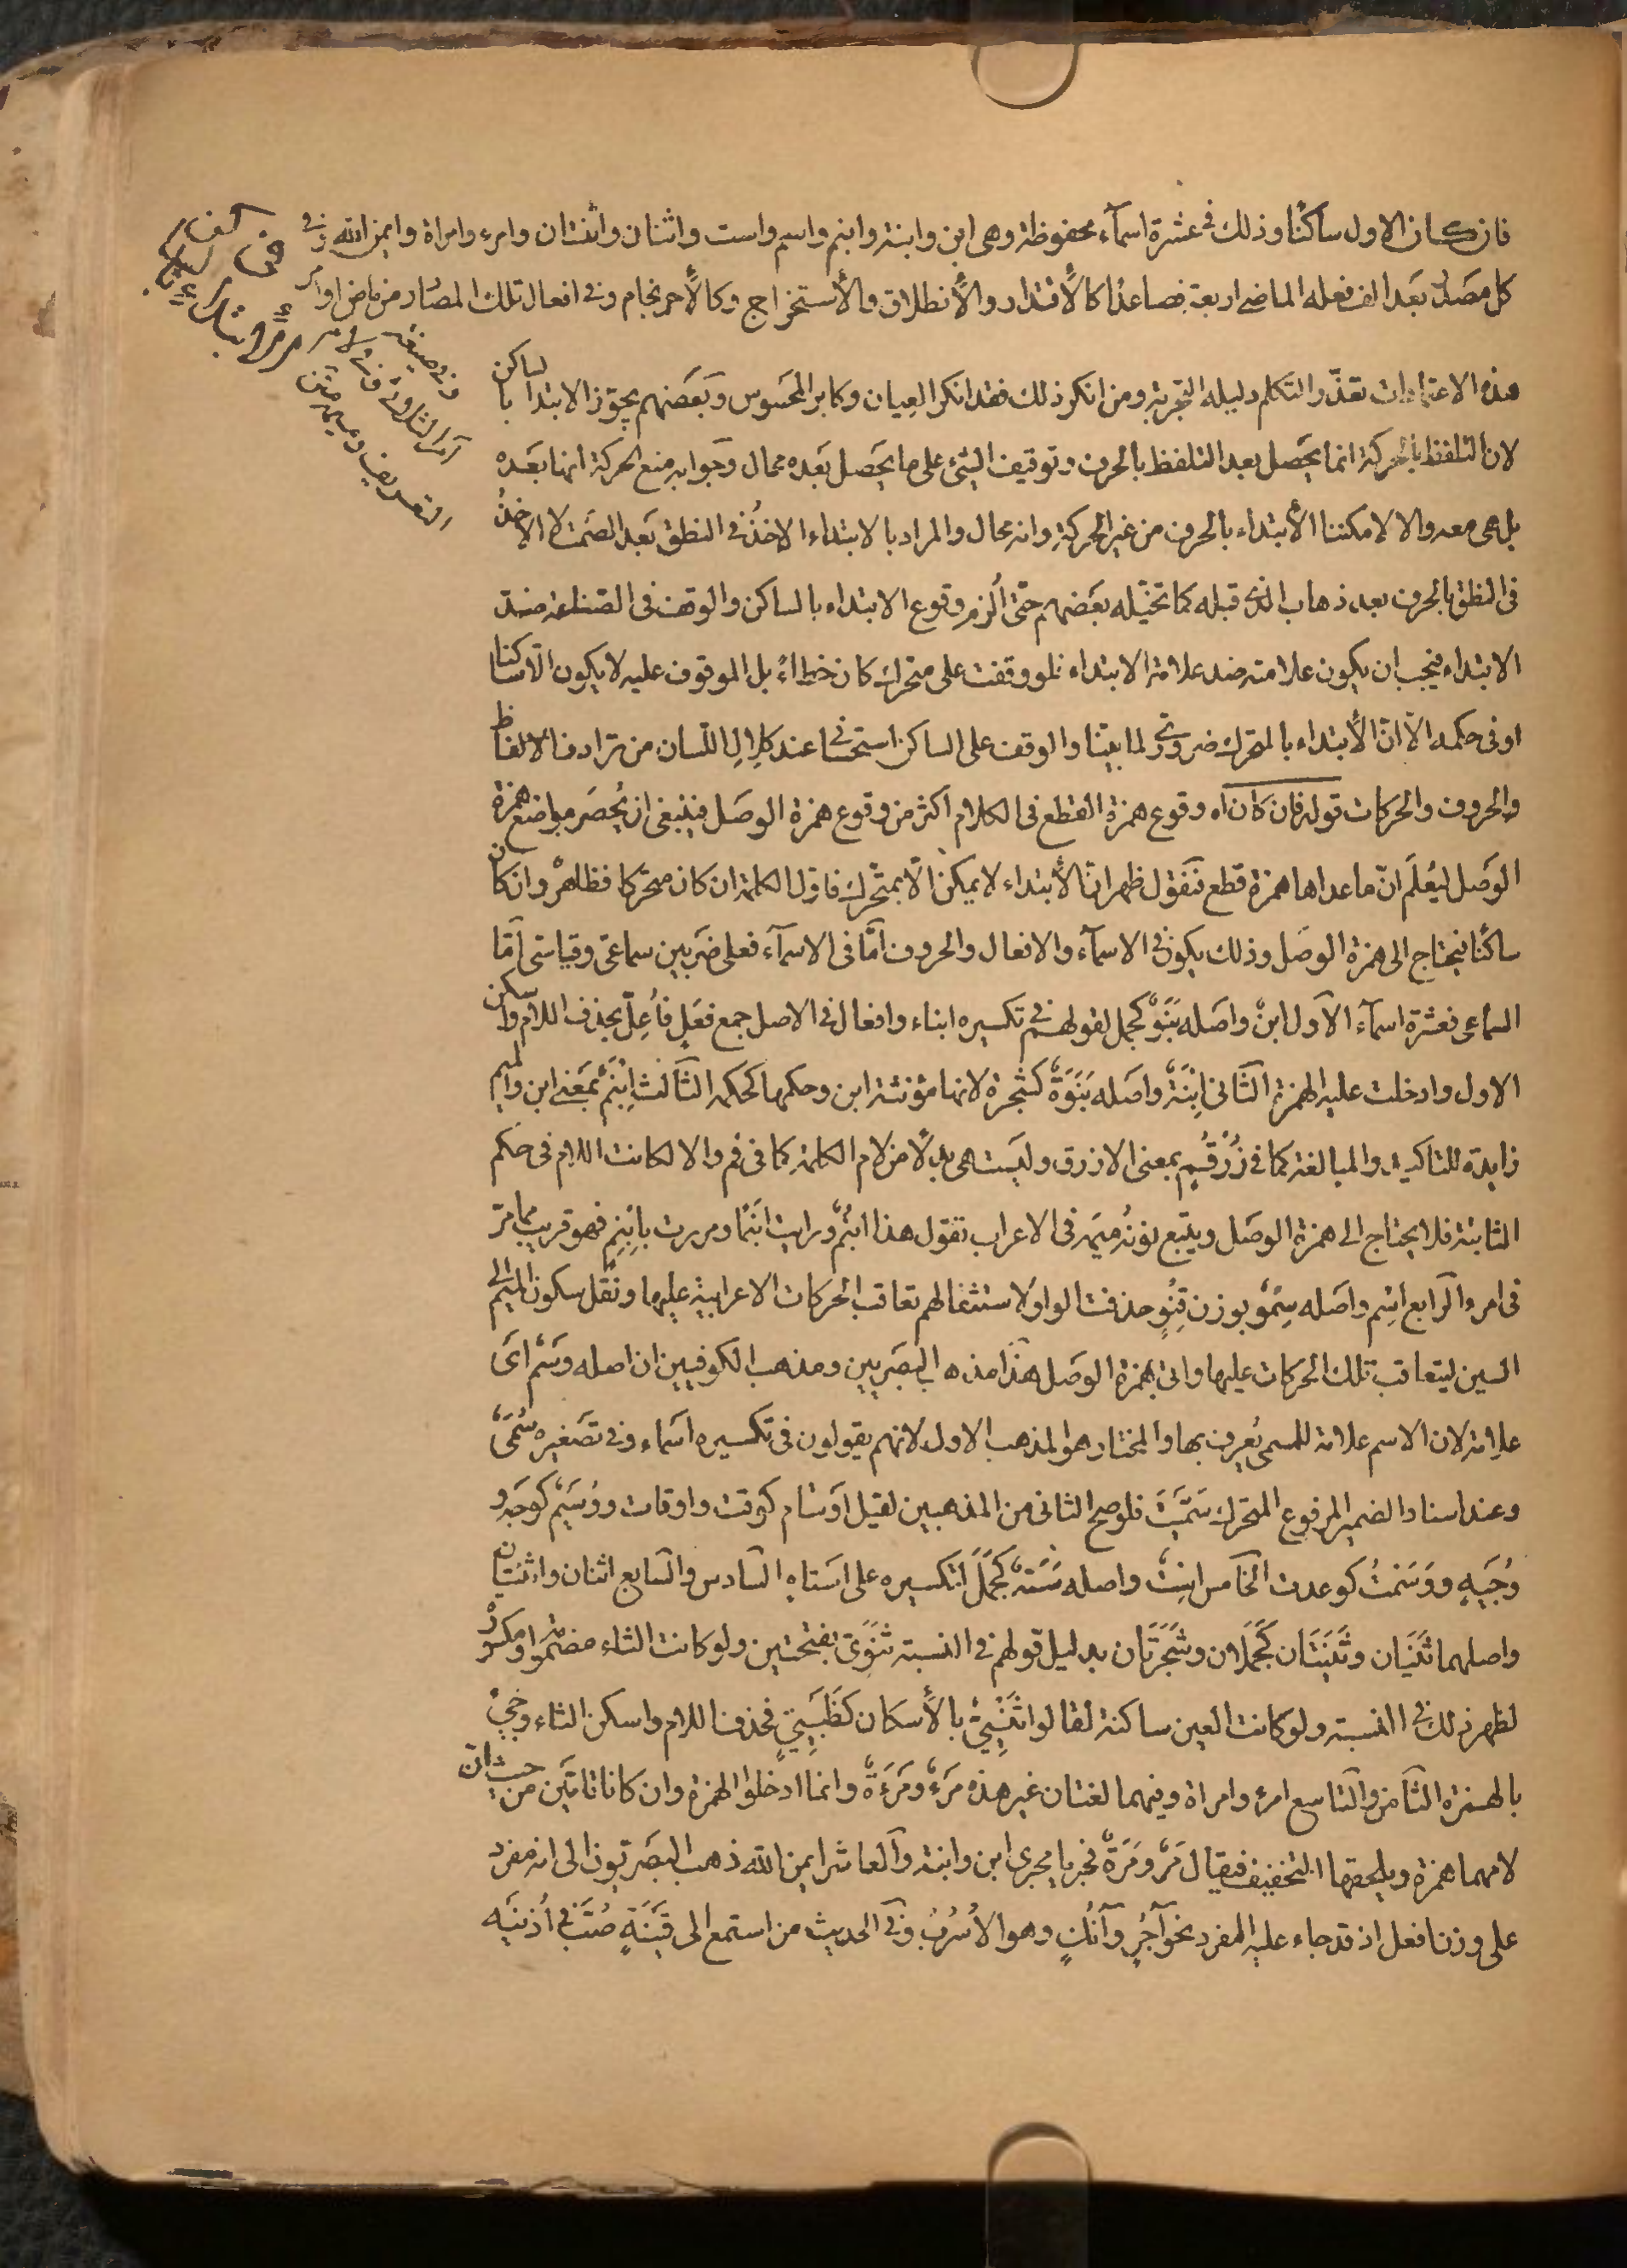 فان كان الاول ساكنًا وذلك فى عشرة اسمآء محفوظة وهى ابن وابنة وابنم واسم واست واثنان واثنتان وامرء وامراة وايمن الله وفى
كل مصدر بعد الف فعله الماضى اربعة فصاعدًا كالأقتدار والأنطلاق والأستخراج وكالأحرنجام وفى افعال تلك المصادر من ماض او امر
وفى صيغة
امر الثلاثى وفى لام
التعريف وميمه
هذه الاعتمادات تعذّر التكلم دليله التجربة ومن انكر ذلك فقد انكر العِيان وكابر المحسوس وبَعضهم يجوّز الابتدا بالساكن
لان التلفظ بالحركة انما يحصل بعد التلفظ بالحرف وتوقيف الشئ على ما يحصل بعده محال وجوابه منع الحركة انها بعده
بل هى معه والا لامكننا الأبتداء بالحرف من غير الحركة وانه محال والمراد بالابتداء الاخذُ فى النطق بعد الصَمت لا الاخذُ
فى النطق بالحرف بعد ذهاب الذى قبله كما تخيّله بعَضهم حتّى اُلزم وقوع الابتداء بالساكن والوقف فى الصّناعة ضد
الابتداء فيجب ان يكون علامته ضد علامة الابتداء فلو وقفت على متحرك كان خطاءً بل الموقوف عليه لا يكون الّا ساكنا
او فى حكمه الّا انّ الأبتداء بالمتحرك ضرورىّ لما بيّنا والوقف على الساكن استحسانىّ عند كلال اللسان من ترادف الالفاظ
والحروف والحركات قوله فان كان اه وقوع همزة القطع فى الكلام اكثر من وقوع همزة الوصَل فينبغى ان يُحصَر مواضع همزة
الوَصل ليُعلَم انّ ما عداها همزة قطع فنَقول ظهر انّ الأبتداء لا يمكن الّا بمتحّرك فاوّل الكلمة ان كان متحركا فظاهرٌ وان كان
ساكنًا فيحتاج الى همزة الوصَل وذلك يكون فى الاسمآء والافعال والحروف امّا فى الاسمآء فعلى ضربين سماعىّ وقياسّى امّا
السماعى فعشرة اسمآء الاول ابنٌ واصَله بَنَوٌ كجمل لقولهم فى تكسيره ابناء وافعال فى الاصل جمع فعَلٍ فاُعِلّ بحذف اللام واسكن
الاول وادخلت عليه الهمزة الثانى اِبْنَةٌ واصَله بَنَوَةٌ كشجرة لانها مؤنثة ابن وحكمها كحكمه الثالث اِبْنَمٌ بمعنى ابن والميم
زايدة للتاكيد والمبالغة كما فى زُرْقُمٍ بمعنى الازرق وليَست هى بدلًا من لام الكلمة كما فى فم والا لكانت اللام فى حكم
الثابتة فلا يحتاج الى همزة الوصَل ويتّبع نونُه ميمَه فى الاعراب تقول هذا ابنُمٌ ورايت ابنَمًا ومررت بابنِمٍ فهو قريب مما مرّ
فى امرء الرابع اسْم واصَله سِمْوٌ بوزن قِنْوٍ حذفت الواو لاستثقالهم تعاقب الحركات الاعرابية عليها ونُقل سكون الميم الى
السين ليتعاقب تلك الحركات عليها واتى بهمزة الوصَل هذا مذهب البصَريين ومذهب الكوفيين ان اصله وَسْم اىَ
علامة لان الاسم علامة للمسمى يُعرف بها والمختار هو المذهب الاول لانهم يقولون فى تكسيره اَسماء وفى تصَغيره سُمَىّ
وعند اسناد الضمير المرفوع المتحرك سَمَّيتَ فلو صح الثانى من المذهبين لقيل اَوسَام كوقت واوقات ووُسَيْم كوَجه و
وُجَيهٍ ووَسَمْتُ كوعدت الخامس اسْتٌ واصله سَتَهٌ كجَمَل لتكسيره على اَستاه السادس والسابع اثنان واثنتان
واصلهما ثَنَيَان وثَنَيَتَان كَجَمَلَان وشَجَرَتَان بدليل قولهم فى النسبة ثَنَوىّ بفتحتين ولو كانت الثاء مضمومة او مكسورة
لظهر ذلك فى النسبة ولو كانت العين ساكنة لقالوا ثَنْيِىٌّ بالأسكان كظَبْيِىٍّ فحذف اللام واسكن الثاء وجئ
بالهمزة الثامن والتاسع امرء وامراة وفيهما لغتان غير هذه مَرْءٌ ومَرْءَةٌ وانما ادخلوا الهمزة وان كانا تامّين من حيث ان
لامهما همزة ويلحقها التخفيف فيقال مَرٌ ومَرَةٌ فجريا مجرى ابن وابنة والعاشر ايمن الله ذهب البصَريّون الى انه مفرد
على وزن افعل اذ قد جاء عليه المفرد نحو آجُرٍ وآنُكٍ وهو الاُسْرُبُ وفى الحديث من استمع الى قَيْنَةٍ صُبَّ فى اُذنَيه